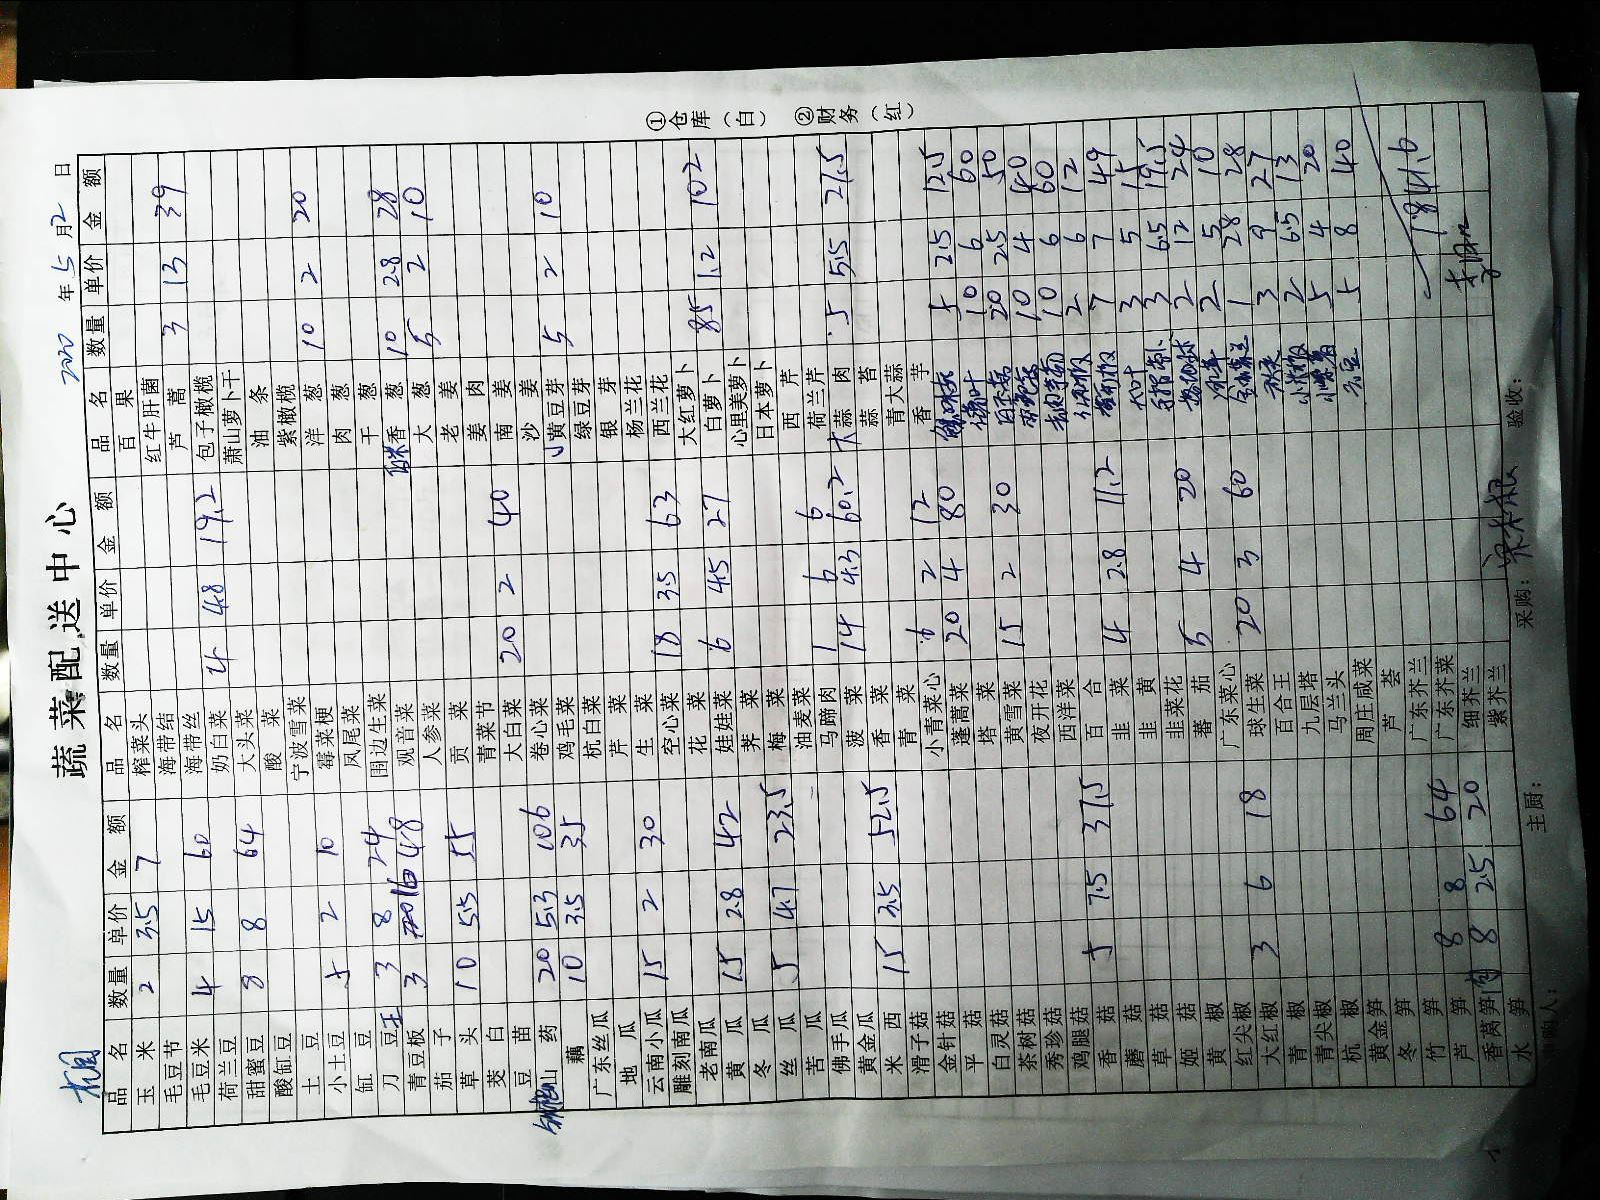 蔬菜配送中心
2020 年 5 月 2 日
品名 数量 单价 金额 品名 数量 单价 金额 品名 数量 单价 金额
玉米 2 3.5 7 榨菜头 百果
毛豆节 海带结 红牛肝菌
毛豆米 4 15 60 海带丝 芦蒿 3 13 39
荷兰豆 奶白菜 4 4.8 19.2 包子橄榄
甜蜜豆 8 8 64 大头菜 萧山萝卜干
酸缸豆 酸菜 油条
土豆 宁波雪菜 紫橄榄
小土豆 5 2 10 霉菜梗 洋葱 10 2 20
缸豆 凤尾菜 肉葱
刀豆王 3 8 24 围边生菜 干葱
青豆板 3 16 48 观音菜 香葱 10 2.8 28
茄子 人参菜 大葱 5 2 10
草头 10 5.5 55 贡菜 老姜
茭白 青菜节 姜肉
豆苗 大白菜 20 2 40 南姜
山药 20 5.3 106 卷心菜 沙姜
藕 10 3.5 35 鸡毛菜 小黄豆芽 5 2 10
广东丝瓜 杭白菜 绿豆芽
地瓜 芹菜 银芽
云南小瓜 15 2 30 生菜 杨兰花
雕刻南瓜 空心菜 18 3.5 63 西兰花
老南瓜 花菜 大红萝卜
黄瓜 15 2.8 42 娃娃菜 6 4.5 27 白萝卜 85 1.2 102
冬瓜 荠菜 心里美萝卜
丝瓜 5 4.7 23.5 梅菜 日本萝卜
苦瓜 油麦菜 西芹
佛手瓜 马蹄肉 1 6 6 荷兰芹
黄金瓜 菠菜 14 4.3 60.2 大蒜肉 5 5.5 27.5
米西 15 3.5 52.5 香菜 蒜苔
滑子菇 青菜 青大蒜
金针菇 小青菜心 6 2 12 香芋
平菇 蓬蒿菜 20 4 80 5 2.5 12.5
白灵菇 塔菜 10 6 60
茶树菇 黄雪菜 15 2 30 20 2.5 50
秀珍菇 夜开花 10 4 40
鸡腿菇 西洋菜 10 6 60
香菇 5 7.5 37.5 百合 2 6 12
蘑菇 韭菜 4 2.8 11.2 7 7 49
草菇 韭黄 3 5 15
姬菇 韭菜花 3 6.5 19.5
黄椒 蕃茄 5 4 20 2 12 24
红尖椒 广东菜心 2 5 10
大红椒 3 6 18 球生菜 20 3 60 1 28 28
青椒 百合王 3 9 27
青尖椒 九层塔 2 6.5 13
杭椒 马兰头 5 4 20
黄金笋 周庄咸菜 5 8 40
冬笋 芦荟
竹笋 广东芥兰
芦笋 8 8 64 广东芥菜 1841.6
香莴笋 8 2.5 20 细芥兰
水笋 紫芥兰
主厨： 采购： 验收：
①仓库（白） ②财务（红）